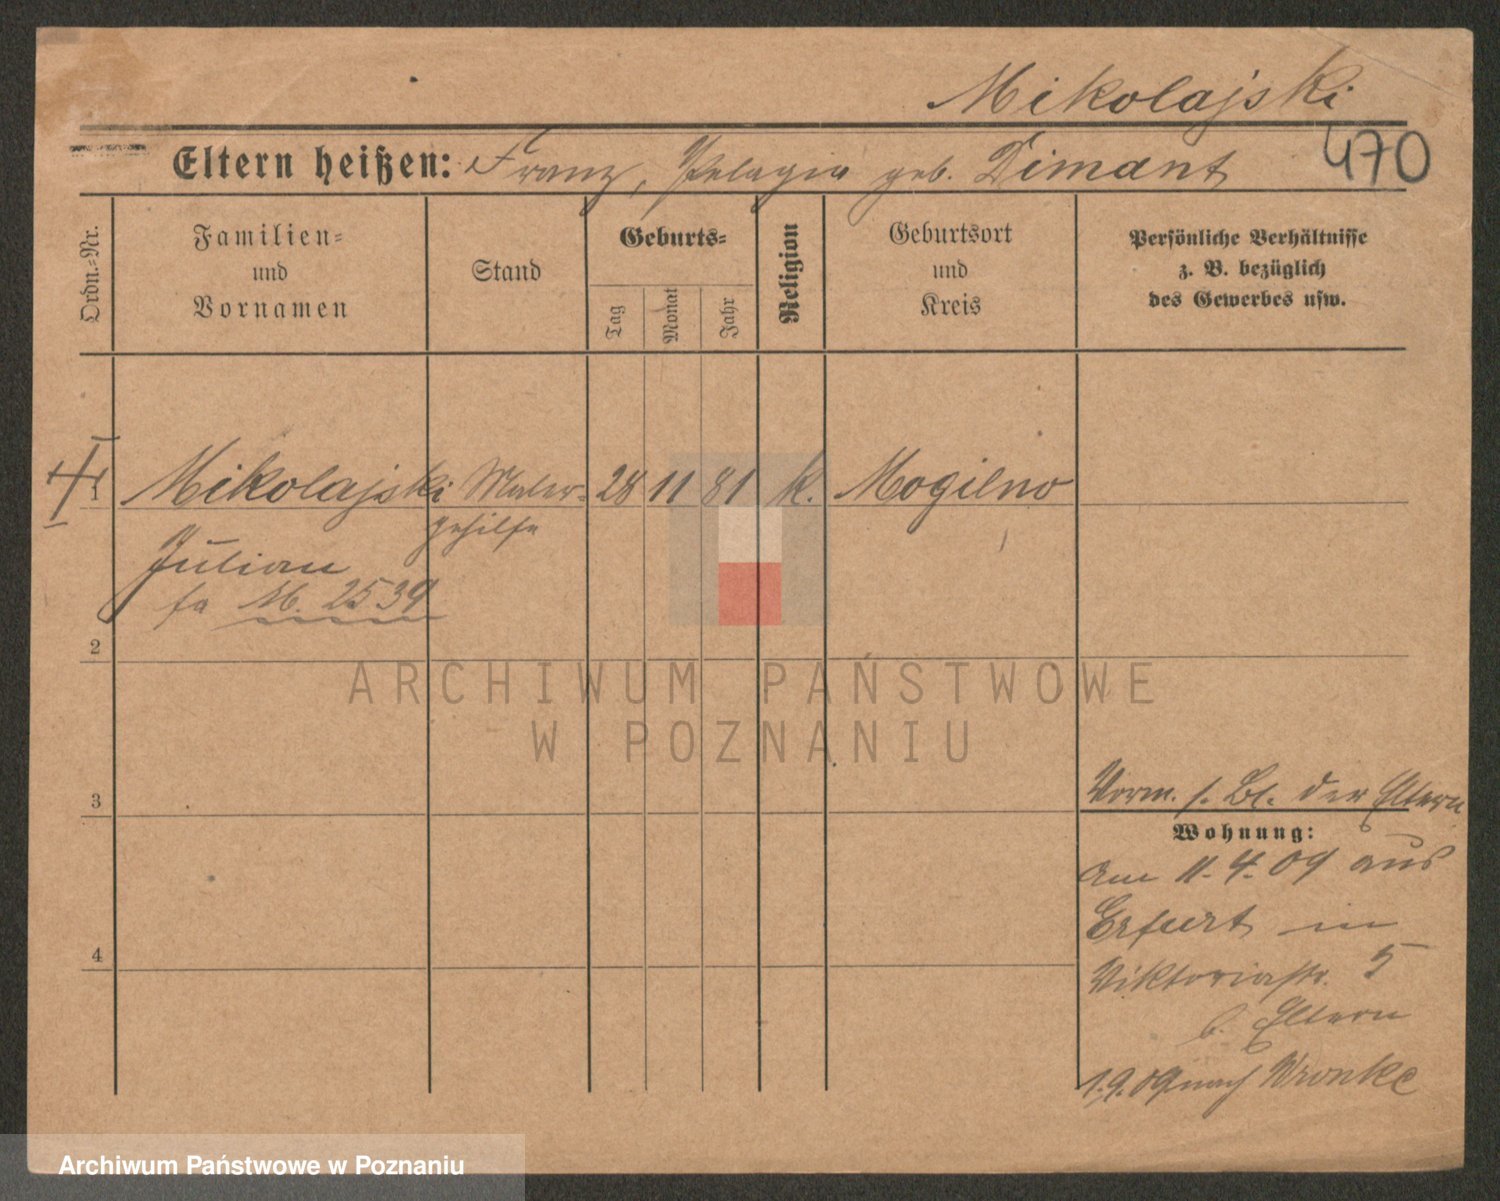 Mikolajski
470
Eltern heißen: Franz, Pelagia geb. Dimant
Ordn.-Nr.
Familien-
und
Vornamen
Stand
Geburts-
Tag
Monat
Jahr
Religion
Geburtsort
und
Kreis
Persönliche Verhältnisse
z. B. bezüglich
des Gewerbes usw.
1 Mikolajski Maler- 28 11 81 k. Mogilno
gehilfe
Julian
M. 2539
2
ARCHIWUM PAŃSTWOWE
W POZNANIU
3
Vorm. s. Bl. der Eltern
Wohnung:
Am 11.4.09 aus
Erfurt in
4
Viktoriastr. 5
b. Eltern
1.9.09 nach Wronke
Archiwum Państwowe w Poznaniu